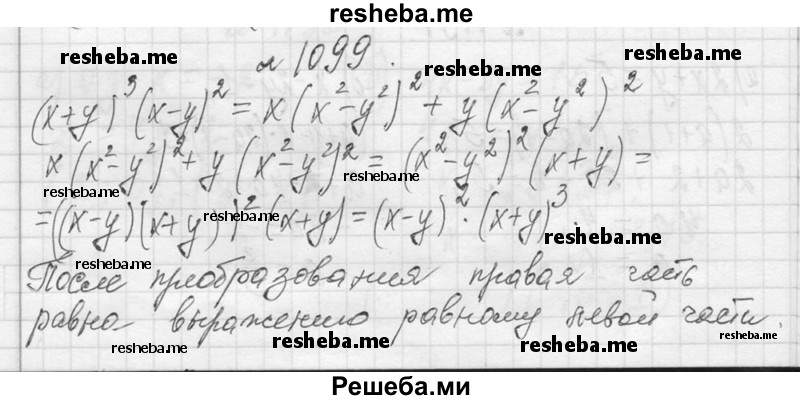 resheba.me
№ 1099.
resheba.me resheba.me resheba.me
(x+y)³(x-y)² = x(x²-y²)² + y(x²-y²)²
x(x²-y²)² + y(x²-y²)² = (x²-y²)²(x+y) =
resheba.me resheba.me resheba.me
=((x-y)(x+y))²(x+y) = (x-y)²·(x+y)³.
resheba.me
resheba.me resheba.me resheba.me
После приобразования правая часть
равна выражению равному левой части.
resheba.me resheba.me resheba.me resheba.me
Решеба.ми